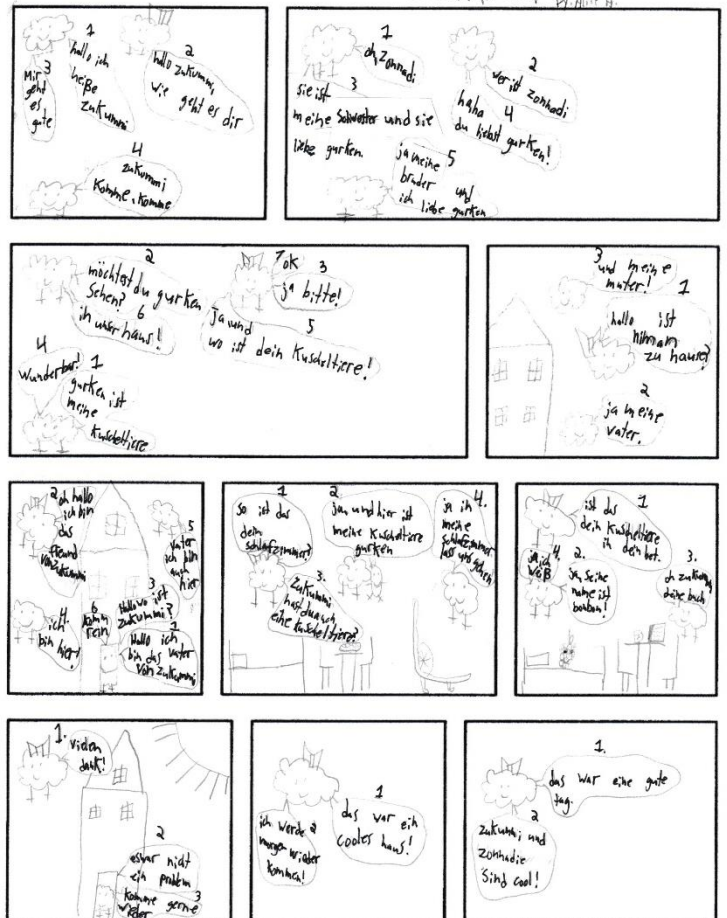 1
hallo ich
heiße
zukummi
2
hallo zukummi,
wie geht es dir
3
Mir
geht
es
gute
4
zukummi
komme, komme
1
oh, zonnadi
2
wer ist zonnadi
3
sie ist
meine Schwester und sie
liebe gurken.
haha 4
du liebst gurken!
5
ja meine
bruder und
ich liebe gurken
1
gurken ist
meine
kuscheltiere
2
möchtest du gurken
sehen?
6
in unser haus!
ok
3
ja bitte!
4
Wunderbar!
5
ja und
wo ist dein Kuscheltiere!
1
hallo ist
zu hause?
2
ja meine
vater.
3
und meine
muter!
1
Hallo ich
bin das vater
von zukummi
2
oh hallo
ich bin
das
freund
von zukummi
3
Hallo wo ist
zukummi?
4.
ich
bin hier!
5
vater
ich bin
auch
hier
6
komm
rein
1
so ist das
dein
schlafzimmer?
2.
ja und hier ist
meine kuscheltiere
gurken
3.
zukummi
hast du auch
eine kuscheltiere?
4.
ja in
meine
schlafzimmer
lass uns sehen
1
ist das
dein kuscheltiere
in dein bet.
2.
ja, seine
name ist
bonbon!
3.
oh zukummi,
deine buch
4.
ja ich
weiß
1.
vielen
dank!
2
es war nicht
ein problem
3
komme gerne
wieder
1
das war ein
cooles haus!
2
ich werde
morgen wieder
kommen!
1.
das war eine gute
tag.
2
zukummi und
zonnadie
sind cool!